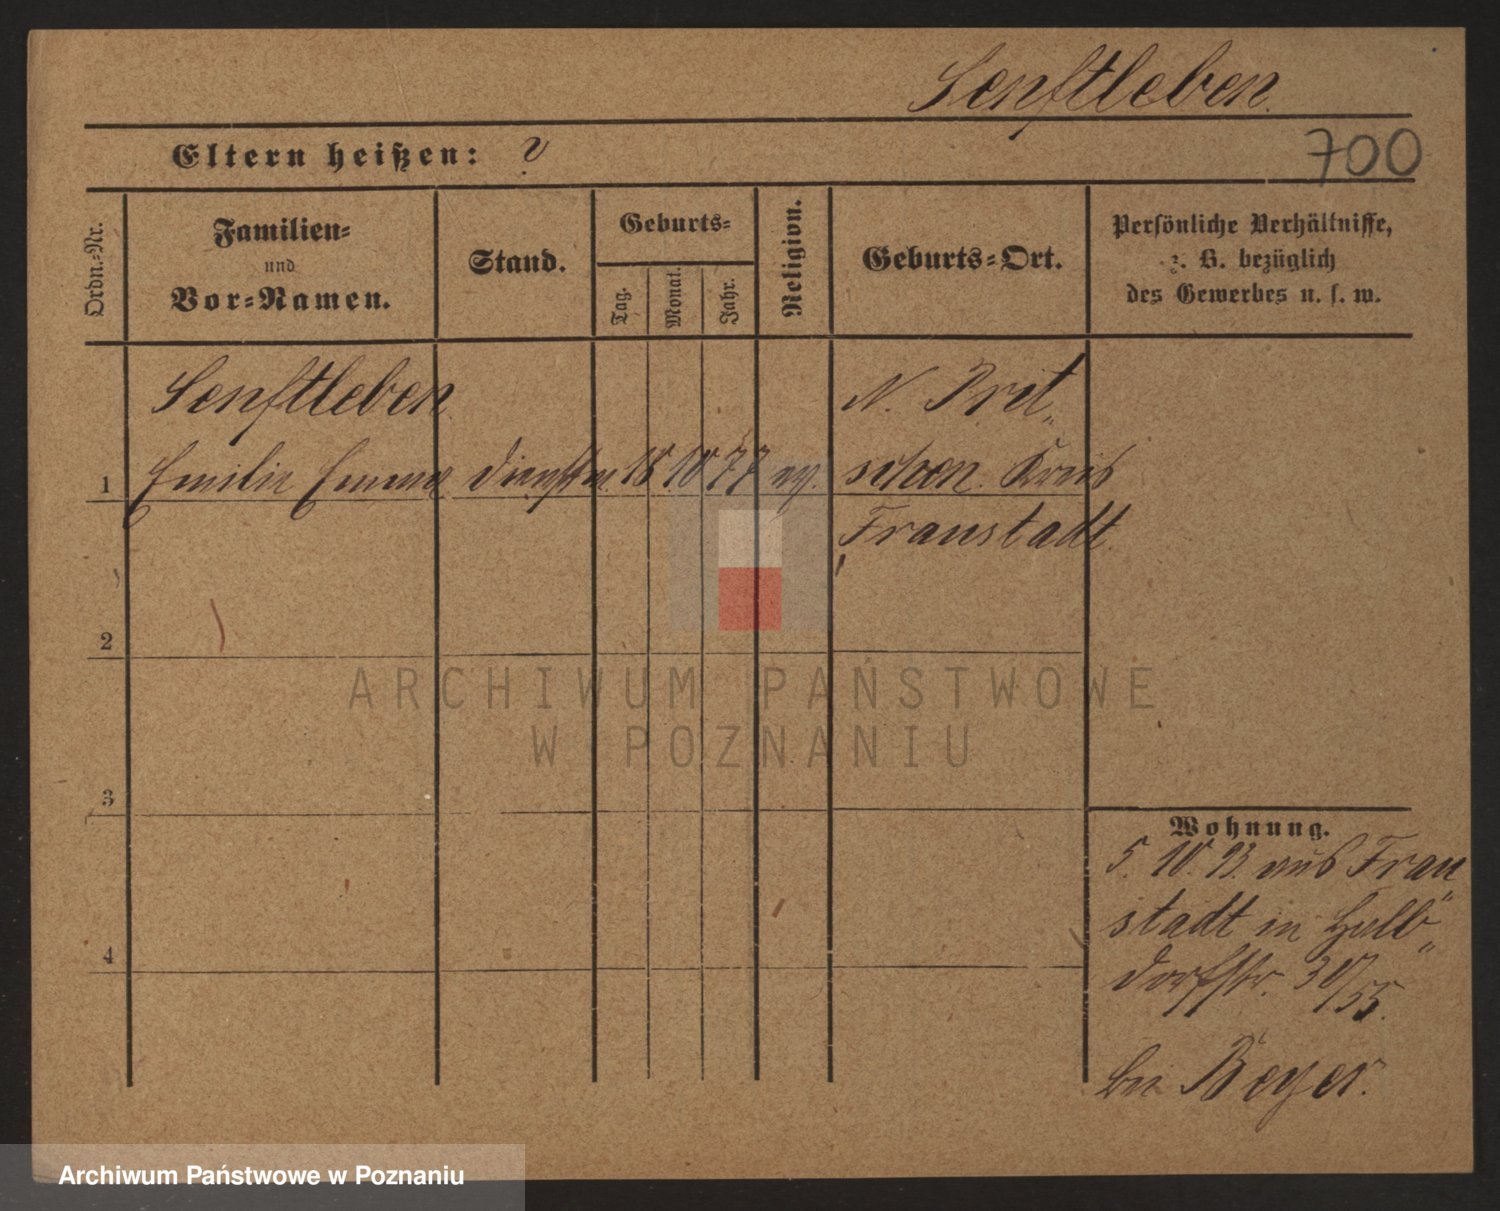 Senftleben.
Eltern heißen: ?
700
Ordn.-Nr.
Familien-
und
Vor-Namen.
Stand.
Geburts-
Tag.
Monat.
Jahr.
Religion.
Geburts-Ort.
Persönliche Verhältnisse,
z. B. bezüglich
des Gewerbes u. s. w.
Senftleben
N. Pret„
1 Emilie Emma Dienstm. 18. 10. 77 ev. schen. Kreis
Fraustadt.
2
ARCHIWUM PAŃSTWOWE
W POZNANIU
3
Wohnung.
5. 10. 93. aus Frau
stadt in Halb„
dorfstr. 30/55.
4
bei Beyer.
Archiwum Państwowe w Poznaniu